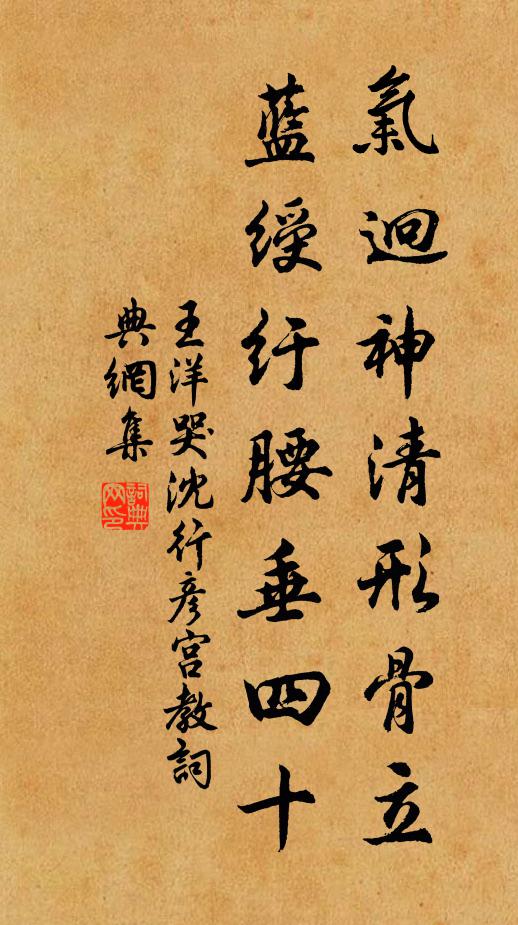 氣迥神清形骨立
藍綬紆腰垂四十
王洋哭沈行彥宫教詞
典網集
詞典網印